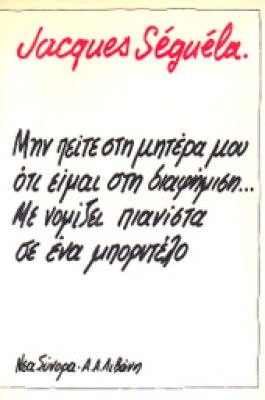 Jacques Séguéla.
Μην πείτε στη μητέρα μου
ότι είμαι στη διαφήμιση...
Με νομίζει πιανίστα
σε ένα μπορντέλο
Νέα Σύνορα - Α.Α.Λιβάνη